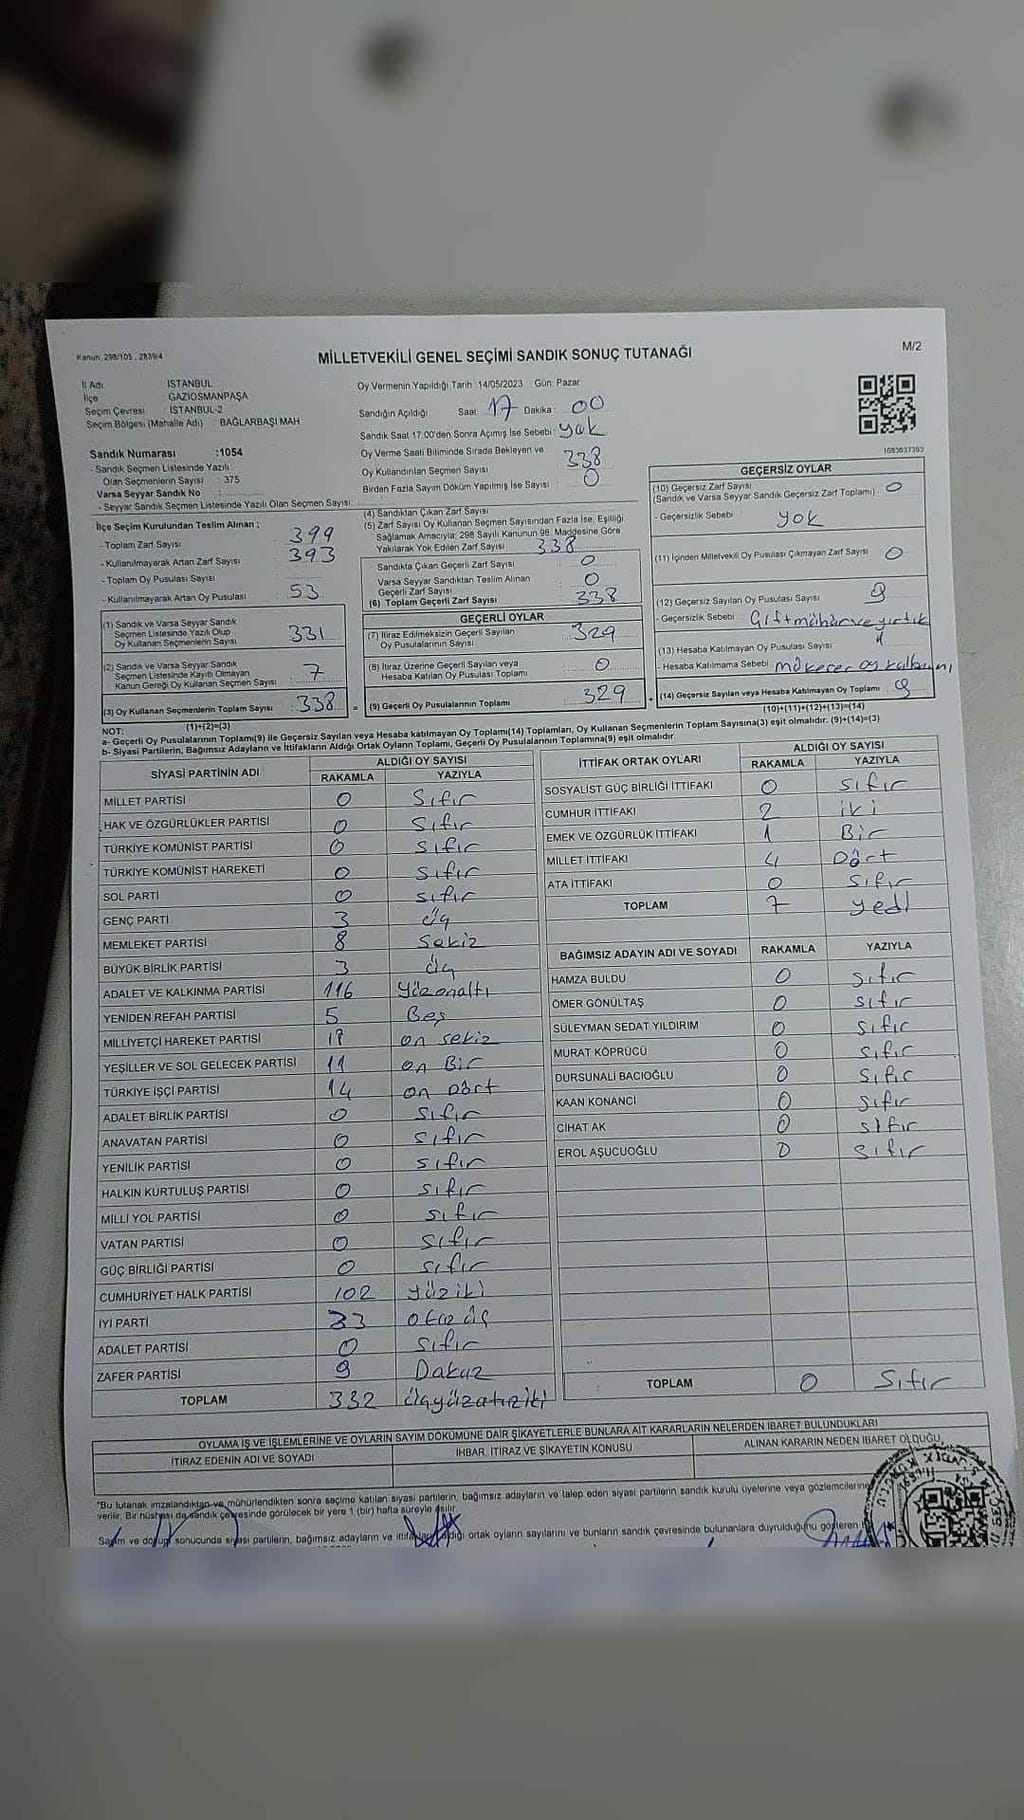 Kanun: 298/105 , 2839/4
MİLLETVEKİLİ GENEL SEÇİMİ SANDIK SONUÇ TUTANAĞI
M/2
İl Adı İSTANBUL
İlçe GAZİOSMANPAŞA
Seçim Çevresi İSTANBUL-2
Seçim Bölgesi (Mahalle Adı) : BAĞLARBAŞI MAH
Oy Vermenin Yapıldığı Tarih :14/05/2023 Gün: Pazar
Sandığın Açıldığı Saat: 17 Dakika: 00
Sandık Saat 17:00'den Sonra Açımış İse Sebebi: yok
Oy Verme Saati Bitiminde Sırada Bekleyen ve
Oy Kullandırılan Seçmen Sayısı 338
Birden Fazla Sayım Döküm Yapılmış İse Sayısı : 0
Sandık Numarası :1054
- Sandık Seçmen Listesinde Yazılı
Olan Seçmenlerin Sayısı : 375
Varsa Seyyar Sandık No :
- Seyyar Sandık Seçmen Listesinde Yazılı Olan Seçmen Sayısı:
İlçe Seçim Kurulundan Teslim Alınan ;
- Toplam Zarf Sayısı 399
- Kullanılmayarak Artan Zarf Sayısı 393
- Toplam Oy Pusulası Sayısı
- Kullanılmayarak Artan Oy Pusulası 53
(1) Sandık ve Varsa Seyyar Sandık
Seçmen Listesinde Yazılı Olup
Oy Kullanan Seçmenlerin Sayısı 331
(2) Sandık ve Varsa Seyyar Sandık
Seçmen Listesinde Kayıtlı Olmayan
Kanun Gereği Oy Kullanan Seçmen Sayısı 7
(3) Oy Kullanan Seçmenlerin Toplam Sayısı : 338
(1)+(2)=(3)
(4) Sandıktan Çıkan Zarf Sayısı
(5) Zarf Sayısı Oy Kullanan Seçmen Sayısından Fazla İse, Eşitliği
Sağlamak Amacıyla; 298 Sayılı Kanunun 98. Maddesine Göre
Yakılarak Yok Edilen Zarf Sayısı 338
Sandıkta Çıkan Geçerli Zarf Sayısı 0
Varsa Seyyar Sandıktan Teslim Alınan
Geçerli Zarf Sayısı 0
(6) Toplam Geçerli Zarf Sayısı 338
GEÇERLİ OYLAR
(7) İtiraz Edilmeksizin Geçerli Sayılan
Oy Pusulalarının Sayısı 329
(8) İtiraz Üzerine Geçerli Sayılan veya
Hesaba Katılan Oy Pusulası Toplamı 0
= (9) Geçerli Oy Pusulalarının Toplamı 329 +
1083637393
GEÇERSİZ OYLAR
(10) Geçersiz Zarf Sayısı
(Sandık ve Varsa Seyyar Sandık Geçersiz Zarf Toplamı) : 0
- Geçersizlik Sebebi yok
(11) İçinden Milletvekili Oy Pusulası Çıkmayan Zarf Sayısı 0
(12) Geçersiz Sayılan Oy Pusulası Sayısı 9
- Geçersizlik Sebebi
(13) Hesaba Katılmayan Oy Pusulası Sayısı
- Hesaba Katılmama Sebebi
(14) Geçersiz Sayılan veya Hesaba Katılmayan Oy Toplamı 9
(10)+(11)+(12)+(13)=(14)
NOT:
a- Geçerli Oy Pusulalarının Toplamı(9) ile Geçersiz Sayılan veya Hesaba katılmayan Oy Toplamı(14) Toplamları, Oy Kullanan Seçmenlerin Toplam Sayısına(3) eşit olmalıdır. (9)+(14)=(3)
b- Siyasi Partilerin, Bağımsız Adayların ve İttifakların Aldığı Ortak Oyların Toplamı, Geçerli Oy Pusulalarının Toplamına(9) eşit olmalıdır.
SİYASİ PARTİNİN ADI ALDIĞI OY SAYISI
RAKAMLA YAZIYLA
MİLLET PARTİSİ 0 Sıfır
HAK VE ÖZGÜRLÜKLER PARTİSİ 0 Sıfır
TÜRKİYE KOMÜNİST PARTİSİ 0 Sıfır
TÜRKİYE KOMÜNİST HAREKETİ 0 Sıfır
SOL PARTİ 0 Sıfır
GENÇ PARTİ 3 üç
MEMLEKET PARTİSİ 8 Sekiz
BÜYÜK BİRLİK PARTİSİ 3 üç
ADALET VE KALKINMA PARTİSİ 116 Yüzonaltı
YENİDEN REFAH PARTİSİ 5 Beş
MİLLİYETÇİ HAREKET PARTİSİ 18 on sekiz
YEŞİLLER VE SOL GELECEK PARTİSİ 11 on Bir
TÜRKİYE İŞÇİ PARTİSİ 14 on Dört
ADALET BİRLİK PARTİSİ 0 Sıfır
ANAVATAN PARTİSİ 0 Sıfır
YENİLİK PARTİSİ 0 Sıfır
HALKIN KURTULUŞ PARTİSİ 0 Sıfır
MİLLİ YOL PARTİSİ 0 Sıfır
VATAN PARTİSİ 0 Sıfır
GÜÇ BİRLİĞİ PARTİSİ 0 Sıfır
CUMHURİYET HALK PARTİSİ 102 Yüziki
İYİ PARTİ 33 otuz üç
ADALET PARTİSİ 0 Sıfır
ZAFER PARTİSİ 9 Dokuz
TOPLAM 332 üçyüzotuziki
İTTİFAK ORTAK OYLARI ALDIĞI OY SAYISI
RAKAMLA YAZIYLA
SOSYALİST GÜÇ BİRLİĞİ İTTİFAKI 0 Sıfır
CUMHUR İTTİFAKI 2 iki
EMEK VE ÖZGÜRLÜK İTTİFAKI 1 Bir
MİLLET İTTİFAKI 4 Dört
ATA İTTİFAKI 0 Sıfır
TOPLAM 7 yedi
BAĞIMSIZ ADAYIN ADI VE SOYADI RAKAMLA YAZIYLA
HAMZA BULDU 0 Sıfır
ÖMER GÖNÜLTAŞ 0 Sıfır
SÜLEYMAN SEDAT YILDIRIM 0 Sıfır
MURAT KÖPRÜCÜ 0 Sıfır
DURSUNALİ BACIOĞLU 0 Sıfır
KAAN KONANCI 0 Sıfır
CİHAT AK 0 Sıfır
EROL AŞUCUOĞLU 0 Sıfır
TOPLAM 0 Sıfır
OYLAMA İŞ VE İŞLEMLERİNE VE OYLARIN SAYIM DÖKÜMÜNE DAİR ŞİKAYETLERLE BUNLARA AİT KARARLARIN NELERDEN İBARET BULUNDUKLARI
İTİRAZ EDENİN ADI VE SOYADI İHBAR, İTİRAZ VE ŞİKAYETİN KONUSU ALINAN KARARIN NEDEN İBARET OLDUĞU
*Bu tutanak imzalandıktan ve mühürlendikten sonra seçime katılan siyasi partilerin, bağımsız adayların ve talep eden siyasi partilerin sandık kurulu üyelerine veya gözlemcilerine
verilir. Bir nüshası da sandık çevresinde görülecek bir yere 1 (bir) hafta süreyle asılır.
Sayım ve döküm sonucunda siyasi partilerin, bağımsız adayların ve ittifakların aldığı ortak oyların sayılarını ve bunların sandık çevresinde bulunanlara duyrulduğunu gösteren